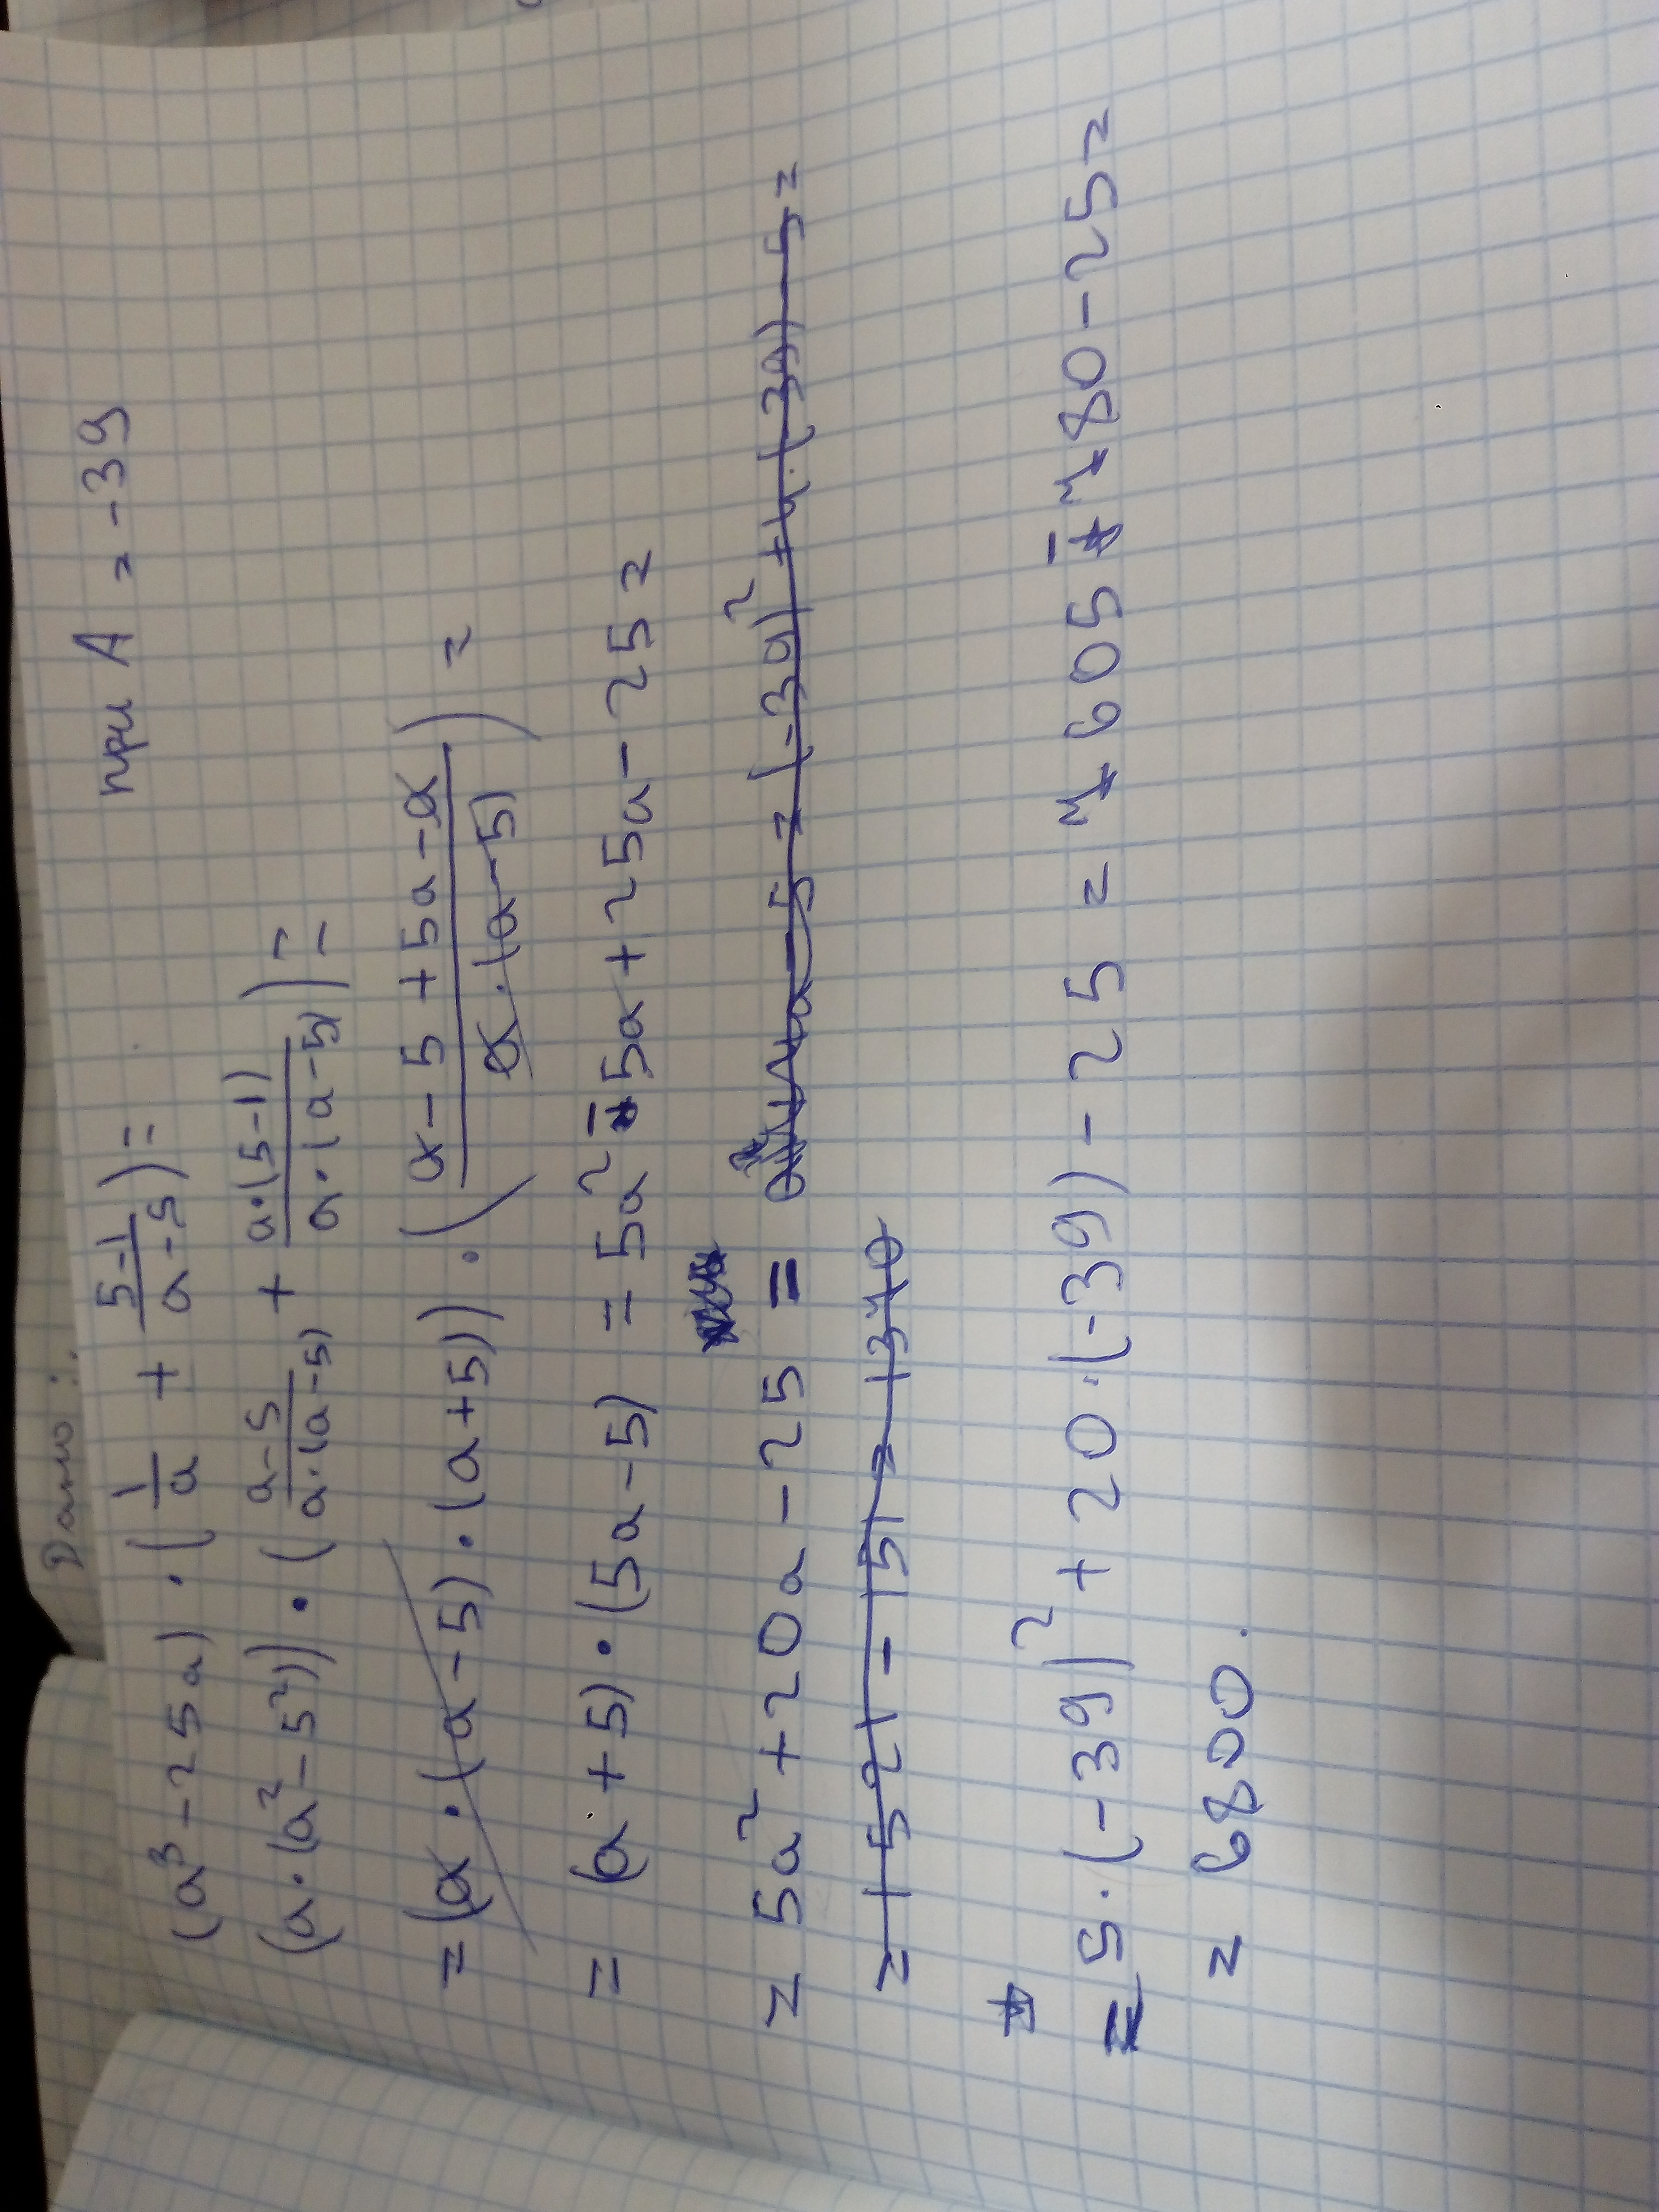 Дано:
при A = -39
(a³ - 25a) · (1/a + (5-1)/(a-5)) =
(a·(a² - 5²)) · ((a-5)/(a·(a-5)) + (a·(5-1))/(a·(a-5))) =
= (a · (a - 5) · (a+5)) · ((a - 5 + 5a - a)/(a·(a-5))) =
= (a + 5) · (5a - 5) = 5a² - 5a + 25a - 25 =
= 5a² + 20a - 25 =
= 1521 - 151 = 1370
= 5·(-39)² + 20·(-39) - 25 = 7605 - 780 - 25 =
= 6800.